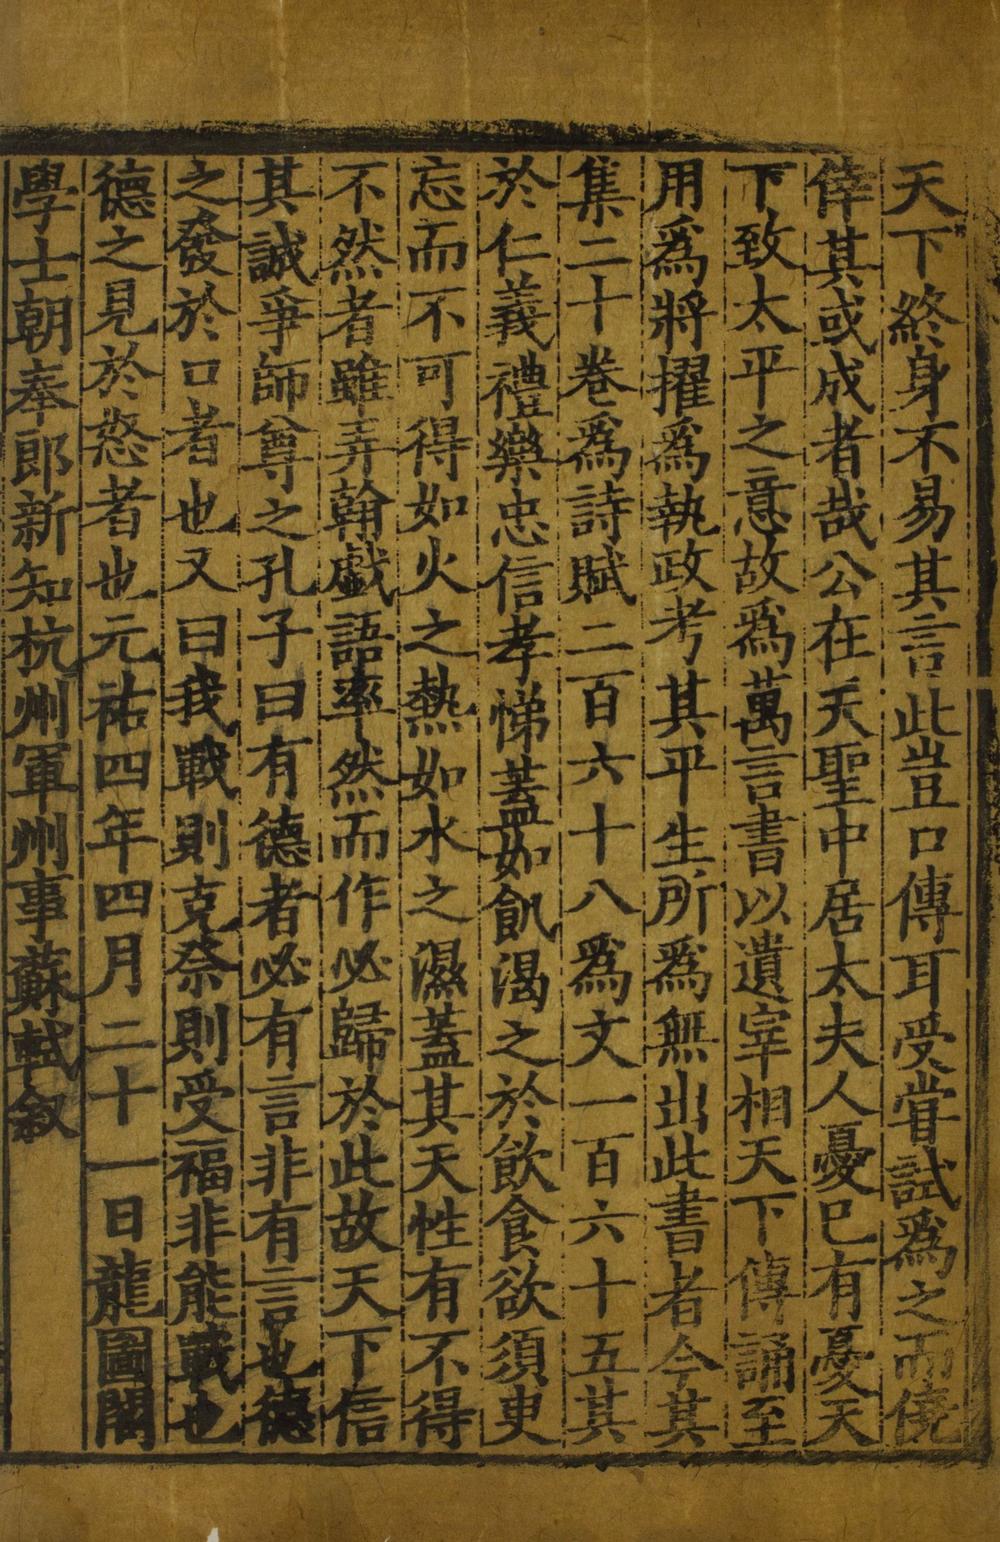 天下終身不易其言此豈口傳耳受甞試爲之而僥
倖其或成者哉公在天聖中居太夫人憂已有憂天
下致太平之意故爲萬言書以遺宰相天下傳誦至
用爲將擢爲執政考其平生所爲無出此書者今其
集二十卷爲詩賦二百六十八爲文一百六十五其
於仁義禮樂忠信孝悌蓋如飢渴之於飲食欲須臾
忘而不可得如火之熱如水之濕蓋其天性有不得
不然者雖弄翰戲語率然而作必歸於此故天下信
其誠爭師尊之孔子曰有德者必有言非有言也德
之發於口者也又曰我戰則克祭則受福非能戰也
德之見於怒者也元祐四年四月二十一日龍圖閣
學士朝奉郎新知杭州軍州事蘇軾叙